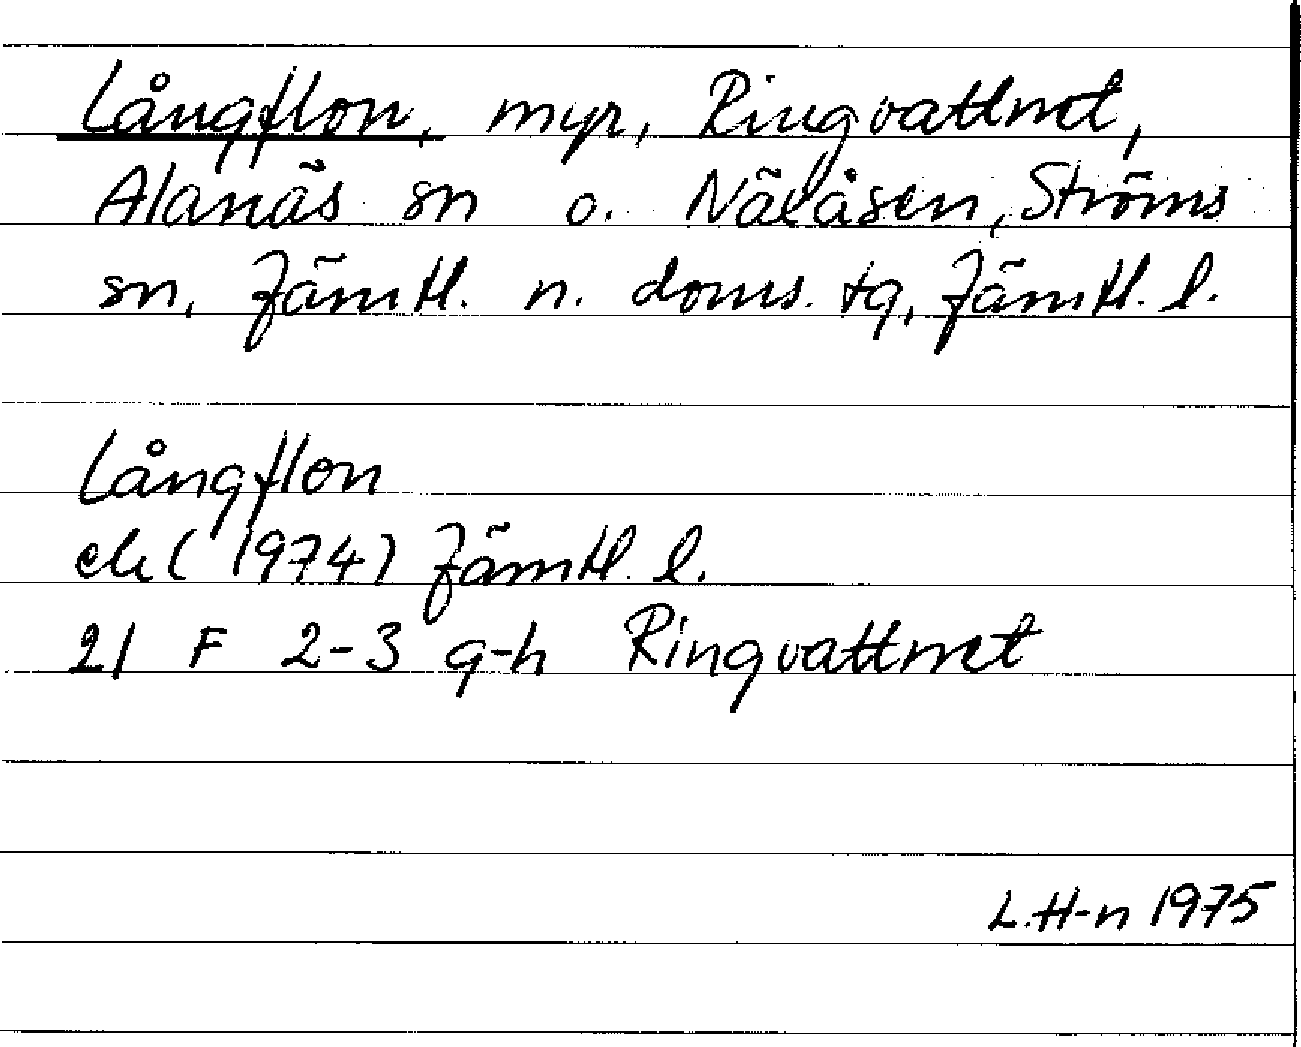 Långflon, myr, Ringvattnet,
Alanäs sn o. Nälåsen, Ströms
sn, Jämtl. n. doms. tg, Jämtl. l.
Långflon
ek (1974) Jämtl. l.
21 F 2-3 g-h Ringvattnet
L.H-n 1975